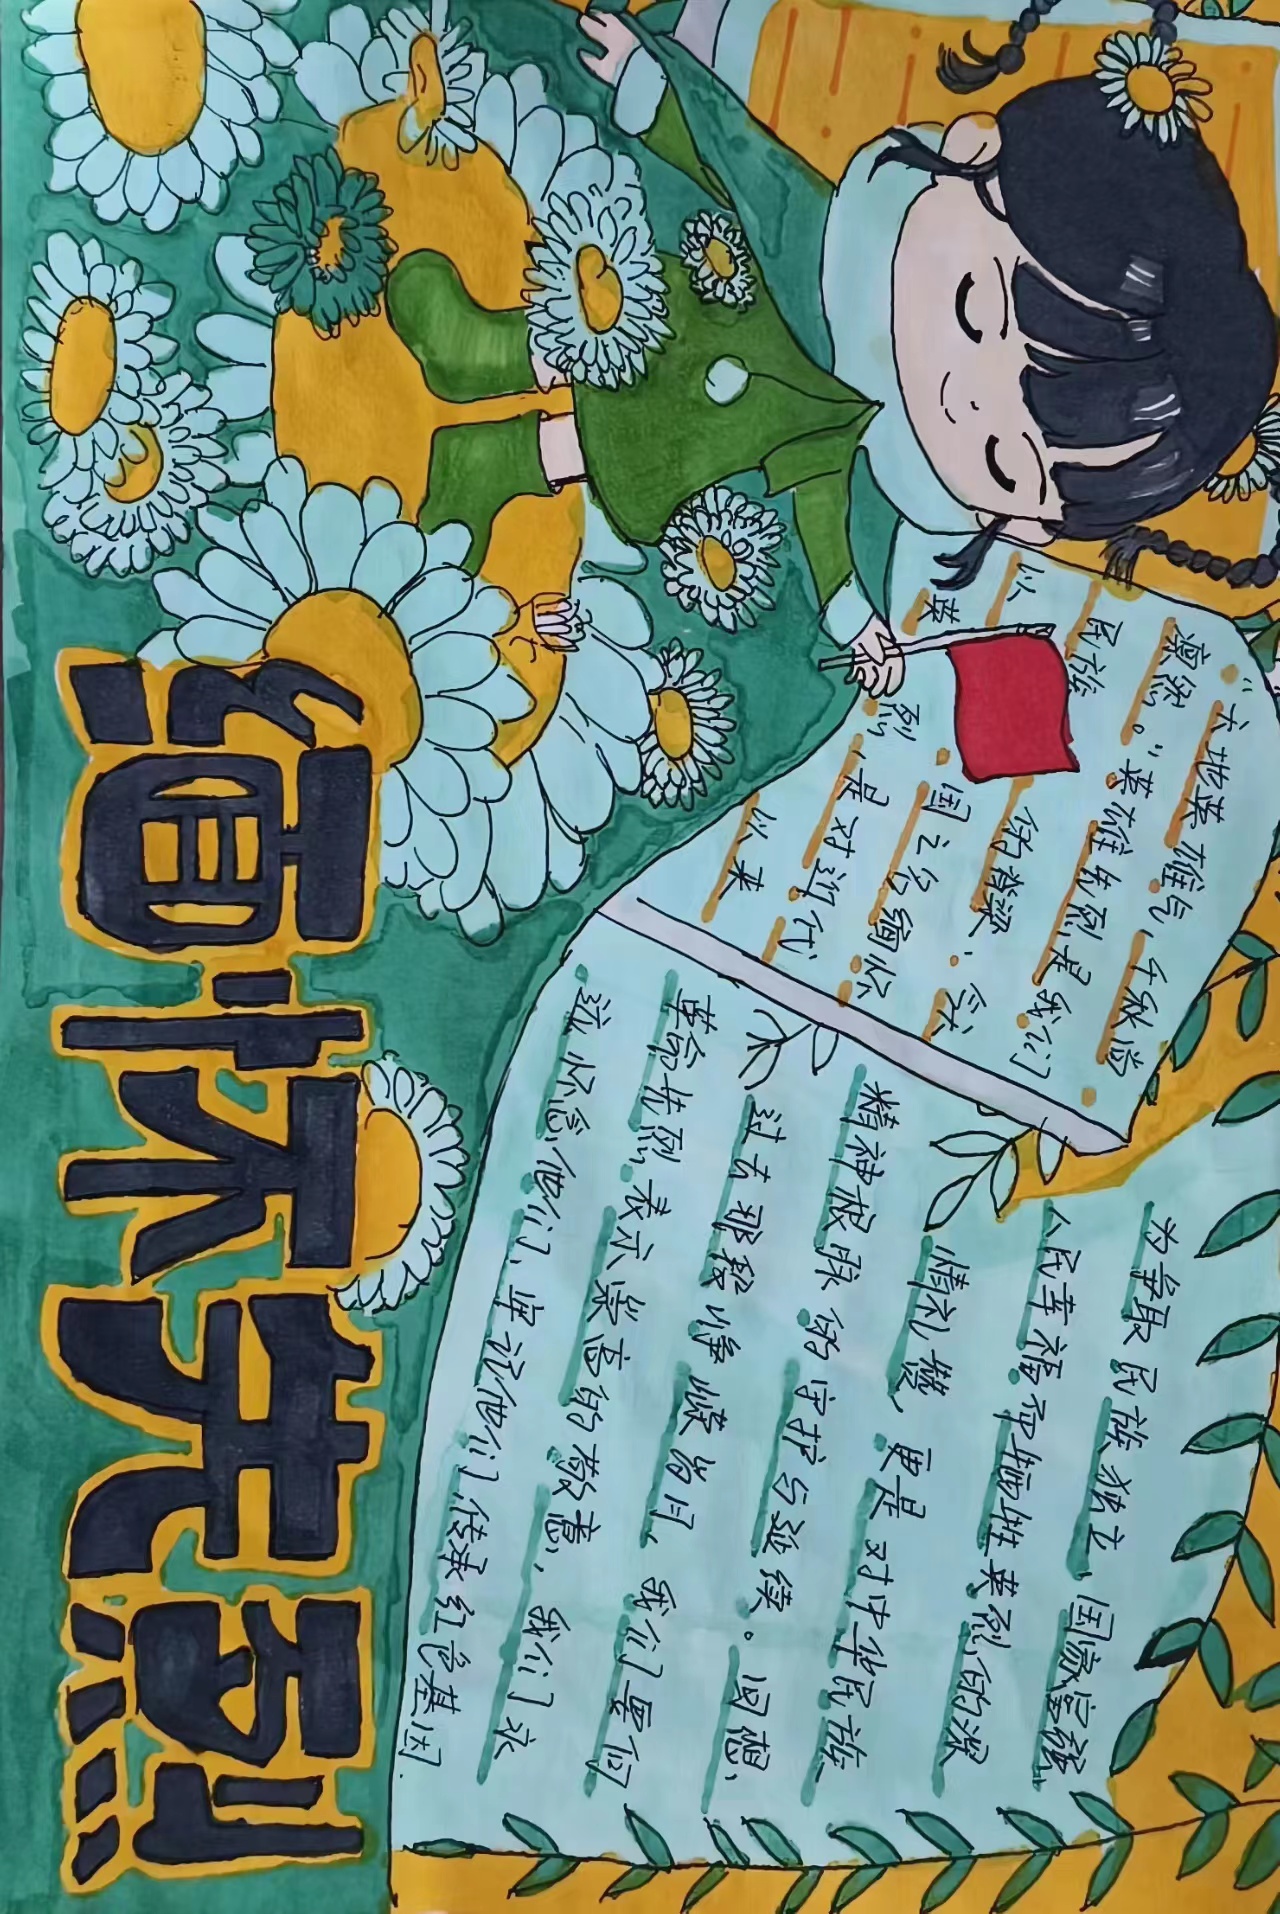 缅怀先烈
“天地英雄气,千秋尚
凛然。”英雄先烈是我们
民族的脊梁、
以国之名缅怀
英烈,是对近代
以来
为争取民族独立、国家富强
人民幸福而牺牲英烈的深
情礼敬,更是对中华民族
精神根脉的守护与延续。回想
过去那段峥嵘岁月,我们要向
革命先烈表示崇高的敬意,我们永
远怀念他们、牢记他们,传承红色基因.